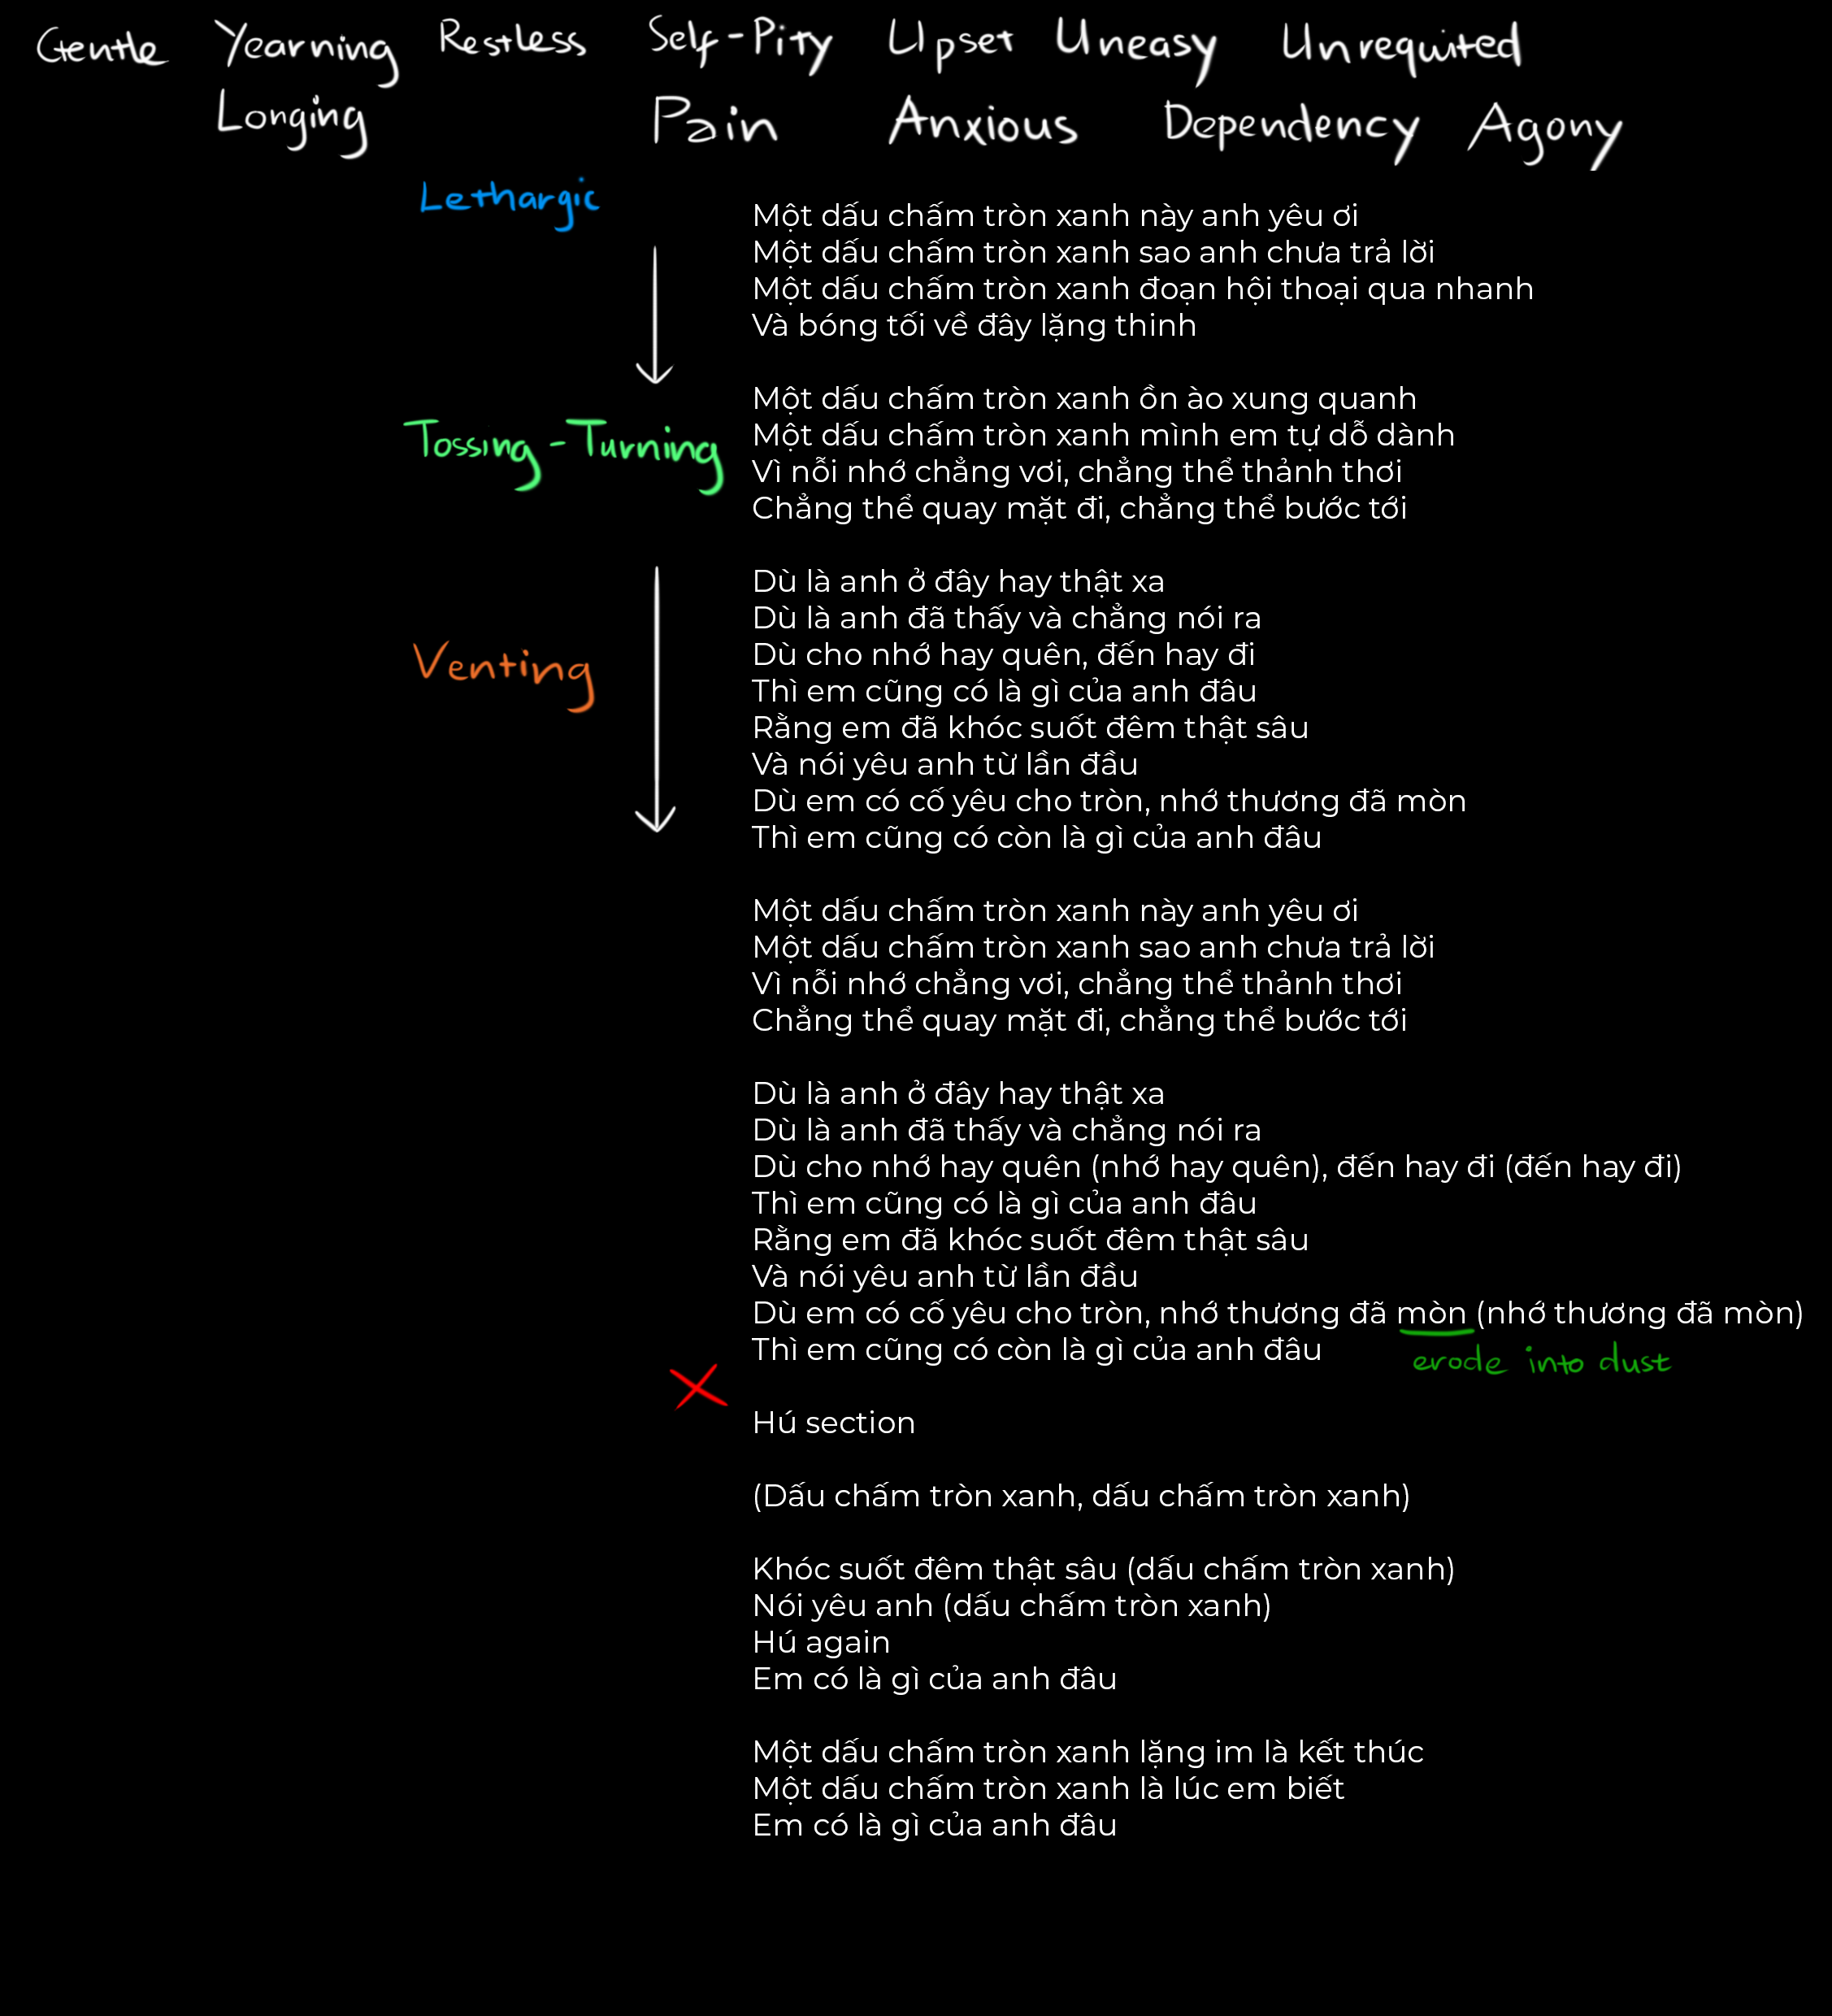 Gentle Yearning Restless Self-Pity Upset Uneasy Unrequited
Longing Pain Anxious Dependency Agony
Lethargic
Một dấu chấm tròn xanh này anh yêu ơi
Một dấu chấm tròn xanh sao anh chưa trả lời
Một dấu chấm tròn xanh đoạn hội thoại qua nhanh
Và bóng tối về đây lặng thinh
Một dấu chấm tròn xanh ồn ào xung quanh
Tossing-Turning
Một dấu chấm tròn xanh mình em tự dỗ dành
Vì nỗi nhớ chẳng vơi, chẳng thể thảnh thơi
Chẳng thể quay mặt đi, chẳng thể bước tới
Dù là anh ở đây hay thật xa
Dù là anh đã thấy và chẳng nói ra
Dù cho nhớ hay quên, đến hay đi
Venting
Thì em cũng có là gì của anh đâu
Rằng em đã khóc suốt đêm thật sâu
Và nói yêu anh từ lần đầu
Dù em có cố yêu cho tròn, nhớ thương đã mòn
Thì em cũng có còn là gì của anh đâu
Một dấu chấm tròn xanh này anh yêu ơi
Một dấu chấm tròn xanh sao anh chưa trả lời
Vì nỗi nhớ chẳng vơi, chẳng thể thảnh thơi
Chẳng thể quay mặt đi, chẳng thể bước tới
Dù là anh ở đây hay thật xa
Dù là anh đã thấy và chẳng nói ra
Dù cho nhớ hay quên (nhớ hay quên), đến hay đi (đến hay đi)
Thì em cũng có là gì của anh đâu
Rằng em đã khóc suốt đêm thật sâu
Và nói yêu anh từ lần đầu
Dù em có cố yêu cho tròn, nhớ thương đã mòn (nhớ thương đã mòn)
Thì em cũng có còn là gì của anh đâu
erode into dust
Hú section
(Dấu chấm tròn xanh, dấu chấm tròn xanh)
Khóc suốt đêm thật sâu (dấu chấm tròn xanh)
Nói yêu anh (dấu chấm tròn xanh)
Hú again
Em có là gì của anh đâu
Một dấu chấm tròn xanh lặng im là kết thúc
Một dấu chấm tròn xanh là lúc em biết
Em có là gì của anh đâu